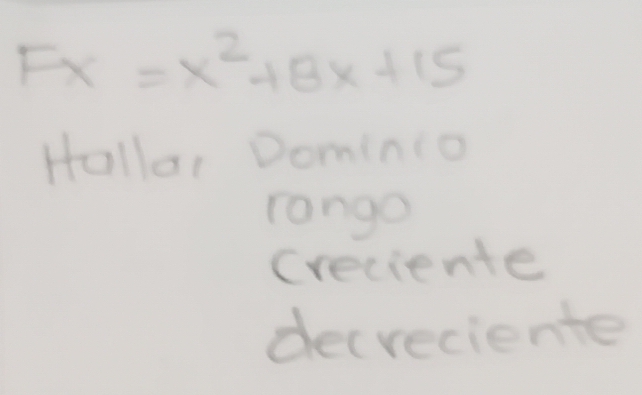 Fx = x²+8x+15
Hallar Dominio
rango
creciente
decreciente